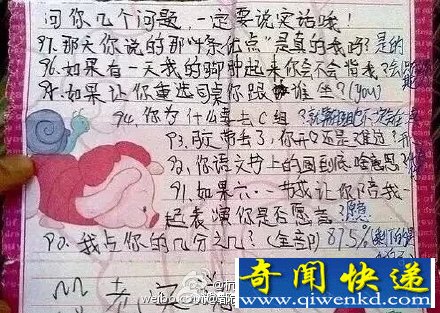 问你几个问题,一定要说实话哦!
97.那天你说的那"十条优点"是真的我吗?是的
96.如果有一天我的脚肿起来你会不会背我?会
95.如果让你重选同桌你跟谁坐?(you)
94.你为什么要去C组?
93.丢了,你开心还是难过?
92,你语文书上的画到底啥意思?
91.如果六·一节让你陪我一
起表演你是否愿意?愿意
90.我占你的几分之几?(全部)87.5%
奇闻快递
www.qiwenkd.com
weibo.com